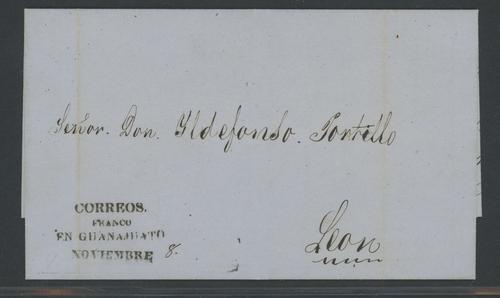 Señor. Don. Ildefonso. Portillo
CORREOS.
FRANCO
EN GUANAJUATO
NOVIEMBRE 8.
Leon